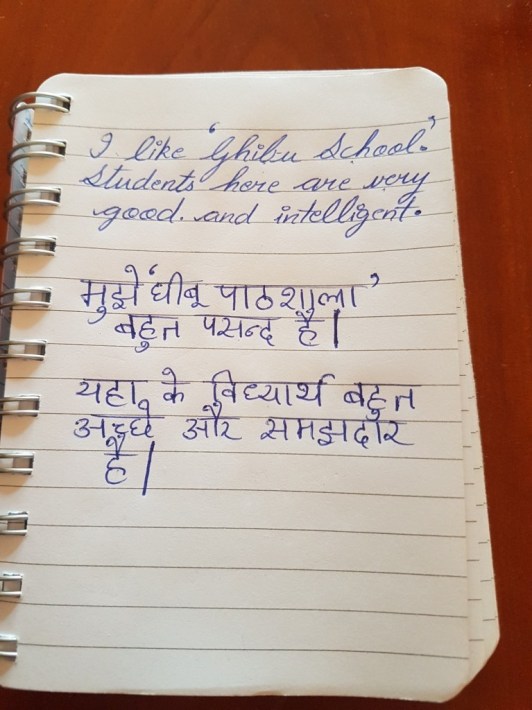 I like 'Ghibu School.'
Students here are very
good. and intelligent.
मुझे 'घीबू पाठशाला'
बहुत पसन्द है।
यहा के विध्यार्थ बहुत
अच्छे और समझदार
है।